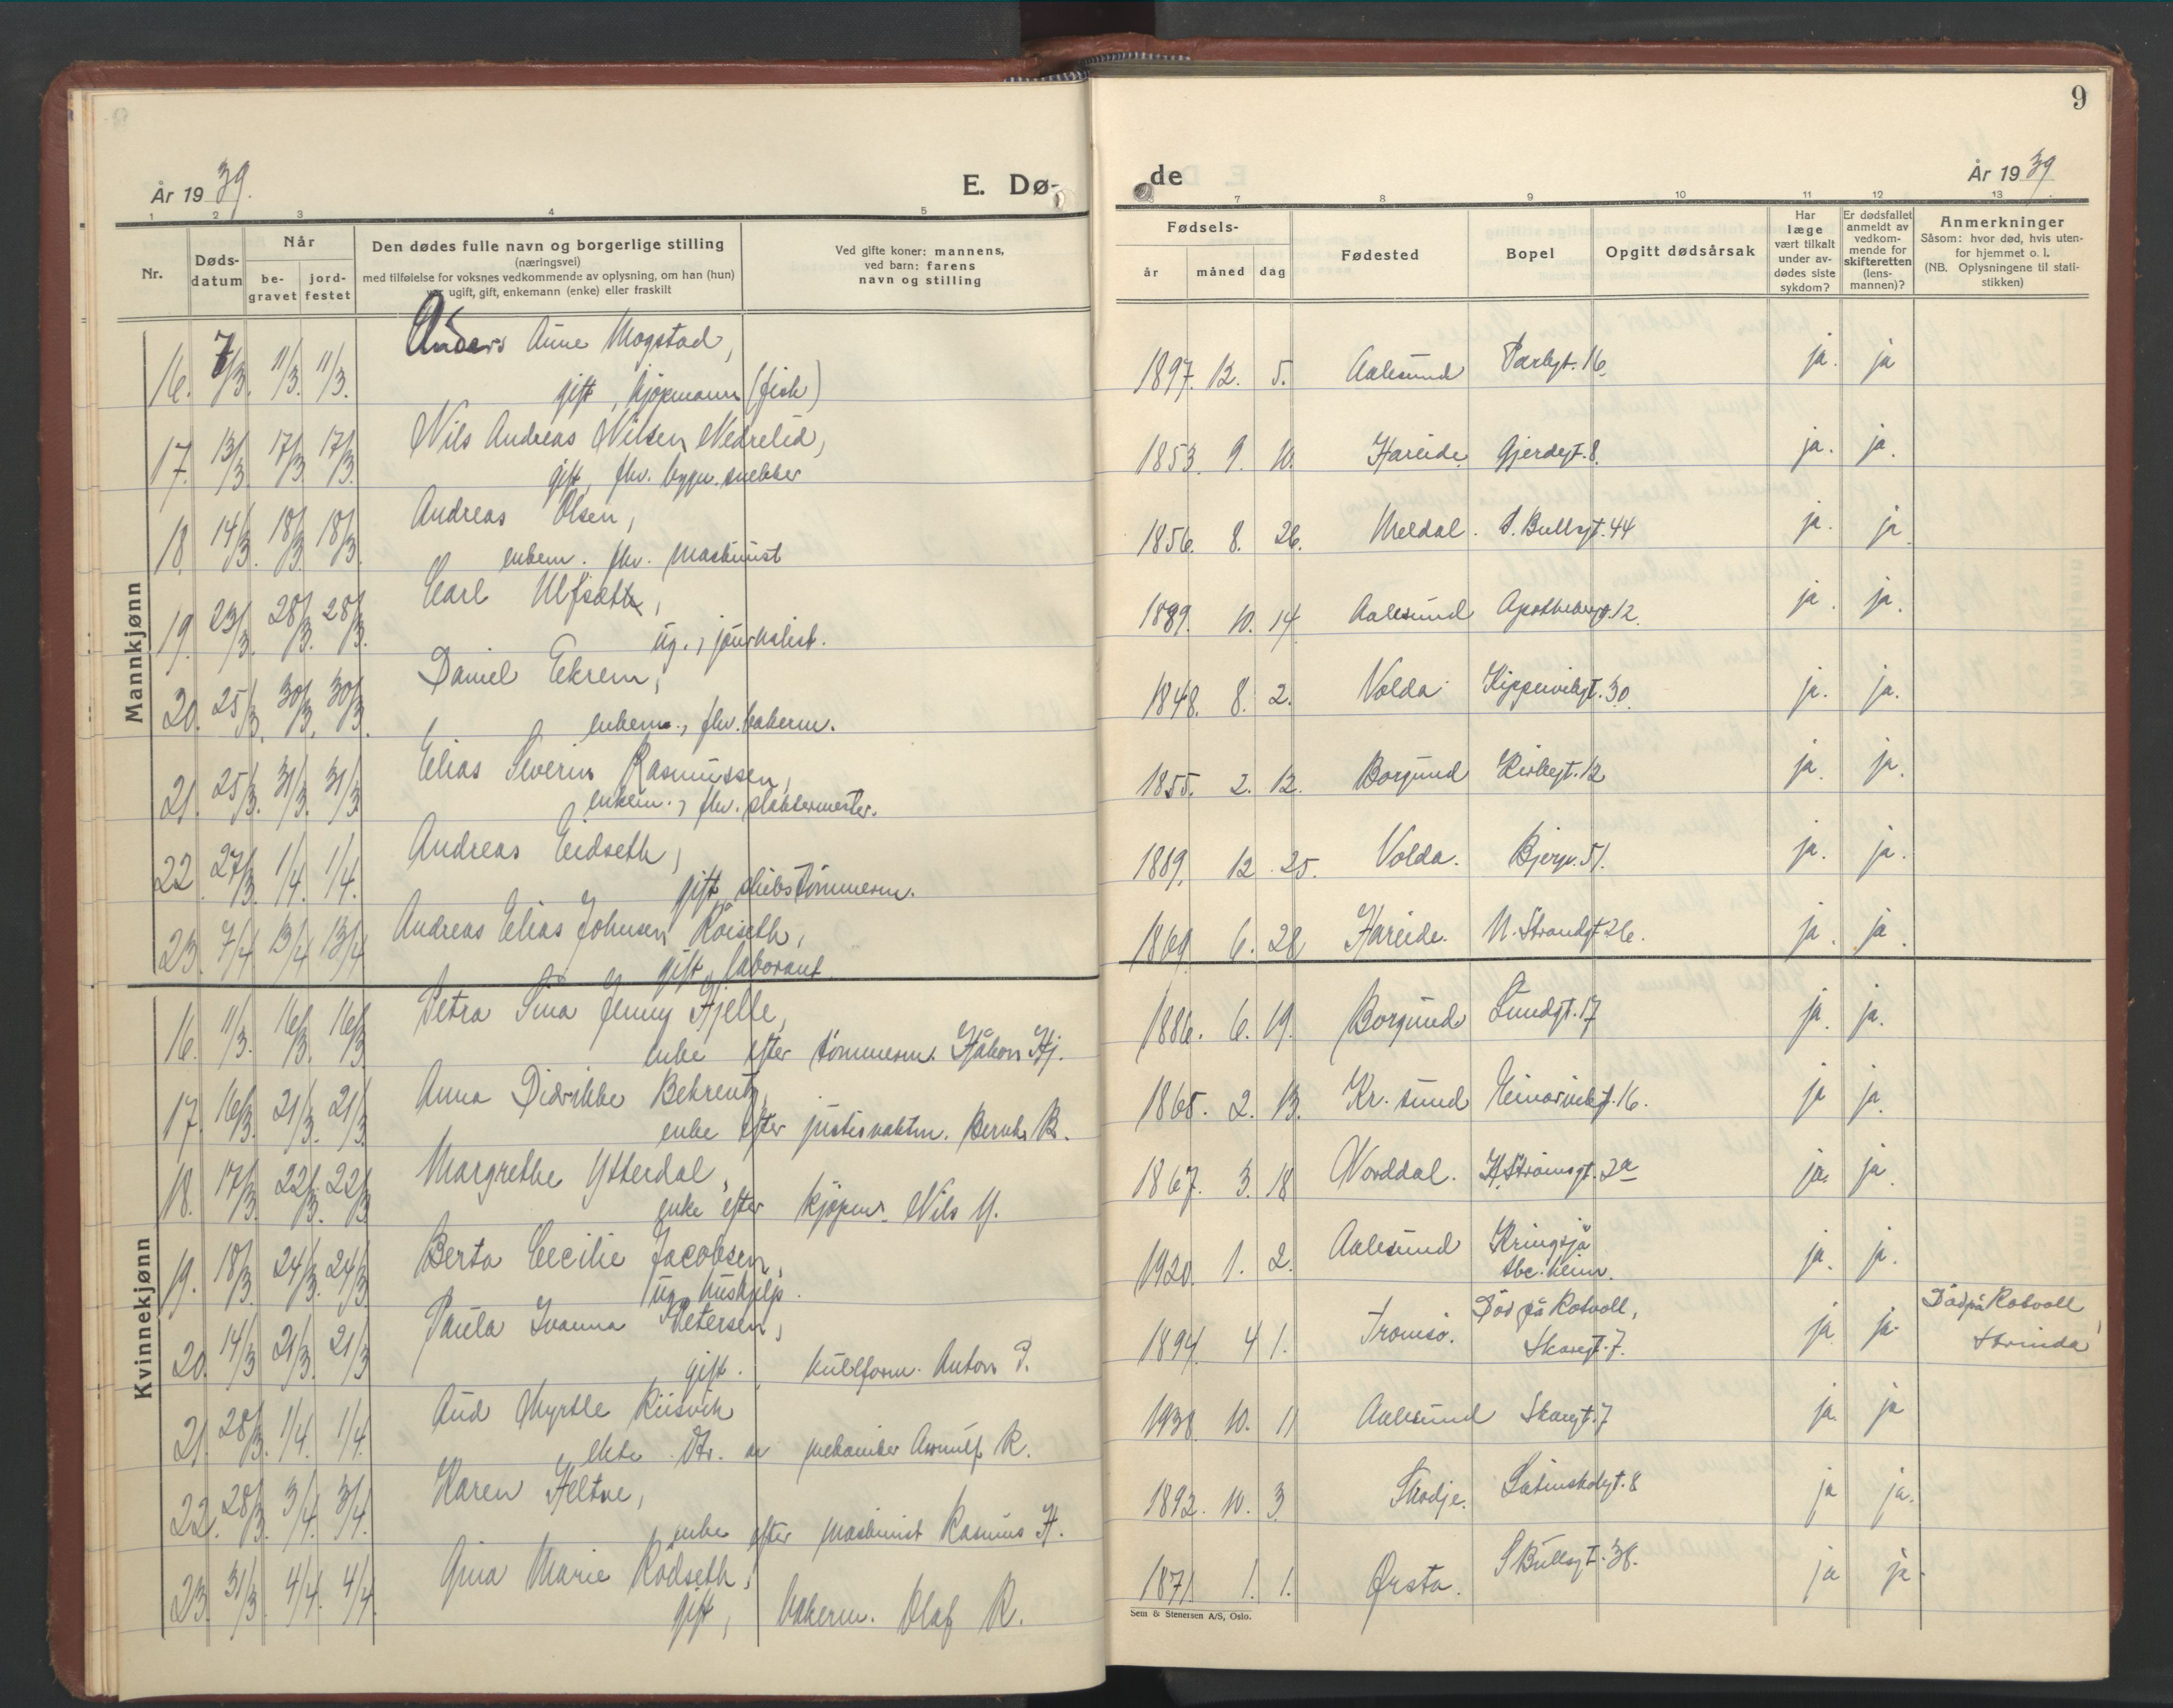 År 1939.
E. Dø-
1 2 3 4 5
Nr.
Døds-
datum
Når
be-
gravet
jord-
festet
Den dødes fulle navn og borgerlige stilling
(næringsvei)
med tilføielse for voksnes vedkommende av oplysning, om han (hun)
var ugift, gift, enkemann (enke) eller fraskilt
Ved gifte koner: mannens,
ved barn: farens
navn og stilling
Mannkjønn
16. 7/3. 11/3. 11/3. Anders Aune Mogstad,
gift, kjøpmann (fisk)
17. 13/3. 17/3. 17/3. Nils Andreas Nilsen Nedrelid,
gift, fhv. bygn. snekker
18. 14/3. 18/3. 18/3. Andreas Olsen,
enkem. fhv. maskinist
19. 23/3. 28/3. 28/3. Carl Ulfseth,
ug., journalist.
20. 25/3. 30/3. 30/3. Daniel Ekrem,
enkem., fhv. bakerm.
21. 25/3. 31/3. 31/3. Elias Severin Rasmussen,
enkem., fhv. slaktermester.
22. 27/3. 1/4. 1/4. Andreas Eidseth,
gift, skibstømmerm.
23. 7/4. 13/4 13/4 Andreas Elias Johnsen Röiseth,
gift, laborant
Kvinnekjønn
16. 11/3. 16/3. 16/3 Petra Sina Jenny Hjelle,
enke efter tømmerm. Håkon Hj.
17. 16/3. 21/3. 21/3 Anna Didrikke Behrentz,
enke efter justisvaktm. Bernh. B.
18. 17/3. 22/3. 22/3 Margrethe Ytterdal,
enke efter kjøpm. Nils Y.
19. 18/3. 24/3. 24/3. Berta Cecilie Jacobsen,
ug. hushjelp.
20. 14/3 21/3. 21/3 Paula Ivanna Petersen,
gift. kullform. Anton P.
21. 28/3. 1/4. 1/4. Aud Myrtle Riisvik
ekte dtr. av mekaniker Arnulf R.
22. 28/3. 3/4. 3/4. Karen Heltne,
enke efter maskinist Rasmus H.
23. 31/3. 4/4. 4/4. Gina Marie Rödseth,
gift, bakerm. Olaf R.
9
de
År 1939.
7 8 9 10 11 12 13
Fødsels-
år måned dag
Fødested
Bopel
Opgitt dødsårsak
Har
læge
vært tilkalt
under av-
dødes siste
sykdom?
Er dødsfallet
anmeldt av
vedkom-
mende for
skifteretten
(lens-
mannen)?
Anmerkninger
Såsom: hvor død, hvis uten-
for hjemmet o. l.
(NB. Oplysningene til stati-
stikken)
1897. 12. 5. Aalesund Parkgt. 16. ja. ja
1853. 9. 10. Hareide Gjerdegt. 8. ja. ja.
1856. 8. 26. Meldal. S. Bullsgt. 44 ja. ja.
1889. 10. 14. Aalesund Apothekerg. 12. ja. ja.
1848. 8. 2. Volda Kippervikgt. 30. ja. ja.
1855. 2. 12. Borgund Kirkegt. 12 ja. ja.
1889. 12. 25. Volda. Bjergv. 51. ja. ja.
1869. 6. 28 Hareide. N. Strandgt 26. ja. ja.
1886. 6. 19. Borgund Lundgt. 17 ja. ja.
1865. 2. 13. Kr. sund Heinarvikgt. 16. ja ja.
1867. 3. 18 Norddal. H. Strömsgt. 2a ja. ja.
1920. 1. 2. Aalesund Kringsjå
tbc. heim. ja. ja.
1894. 4 1. Tromsö. Död på Rotvoll,
Skaregt. 7. ja ja. Död på Rotvoll,
Strinda
1938. 10. 11 Aalesund Skaregt. 7 ja. ja
1892. 10. 3. Skodje. Latinskolegt. 8 ja ja.
1871 1. 1. Ørsta. S Bullsgt. 38. ja ja.
Sem & Stenersen A/S, Oslo.